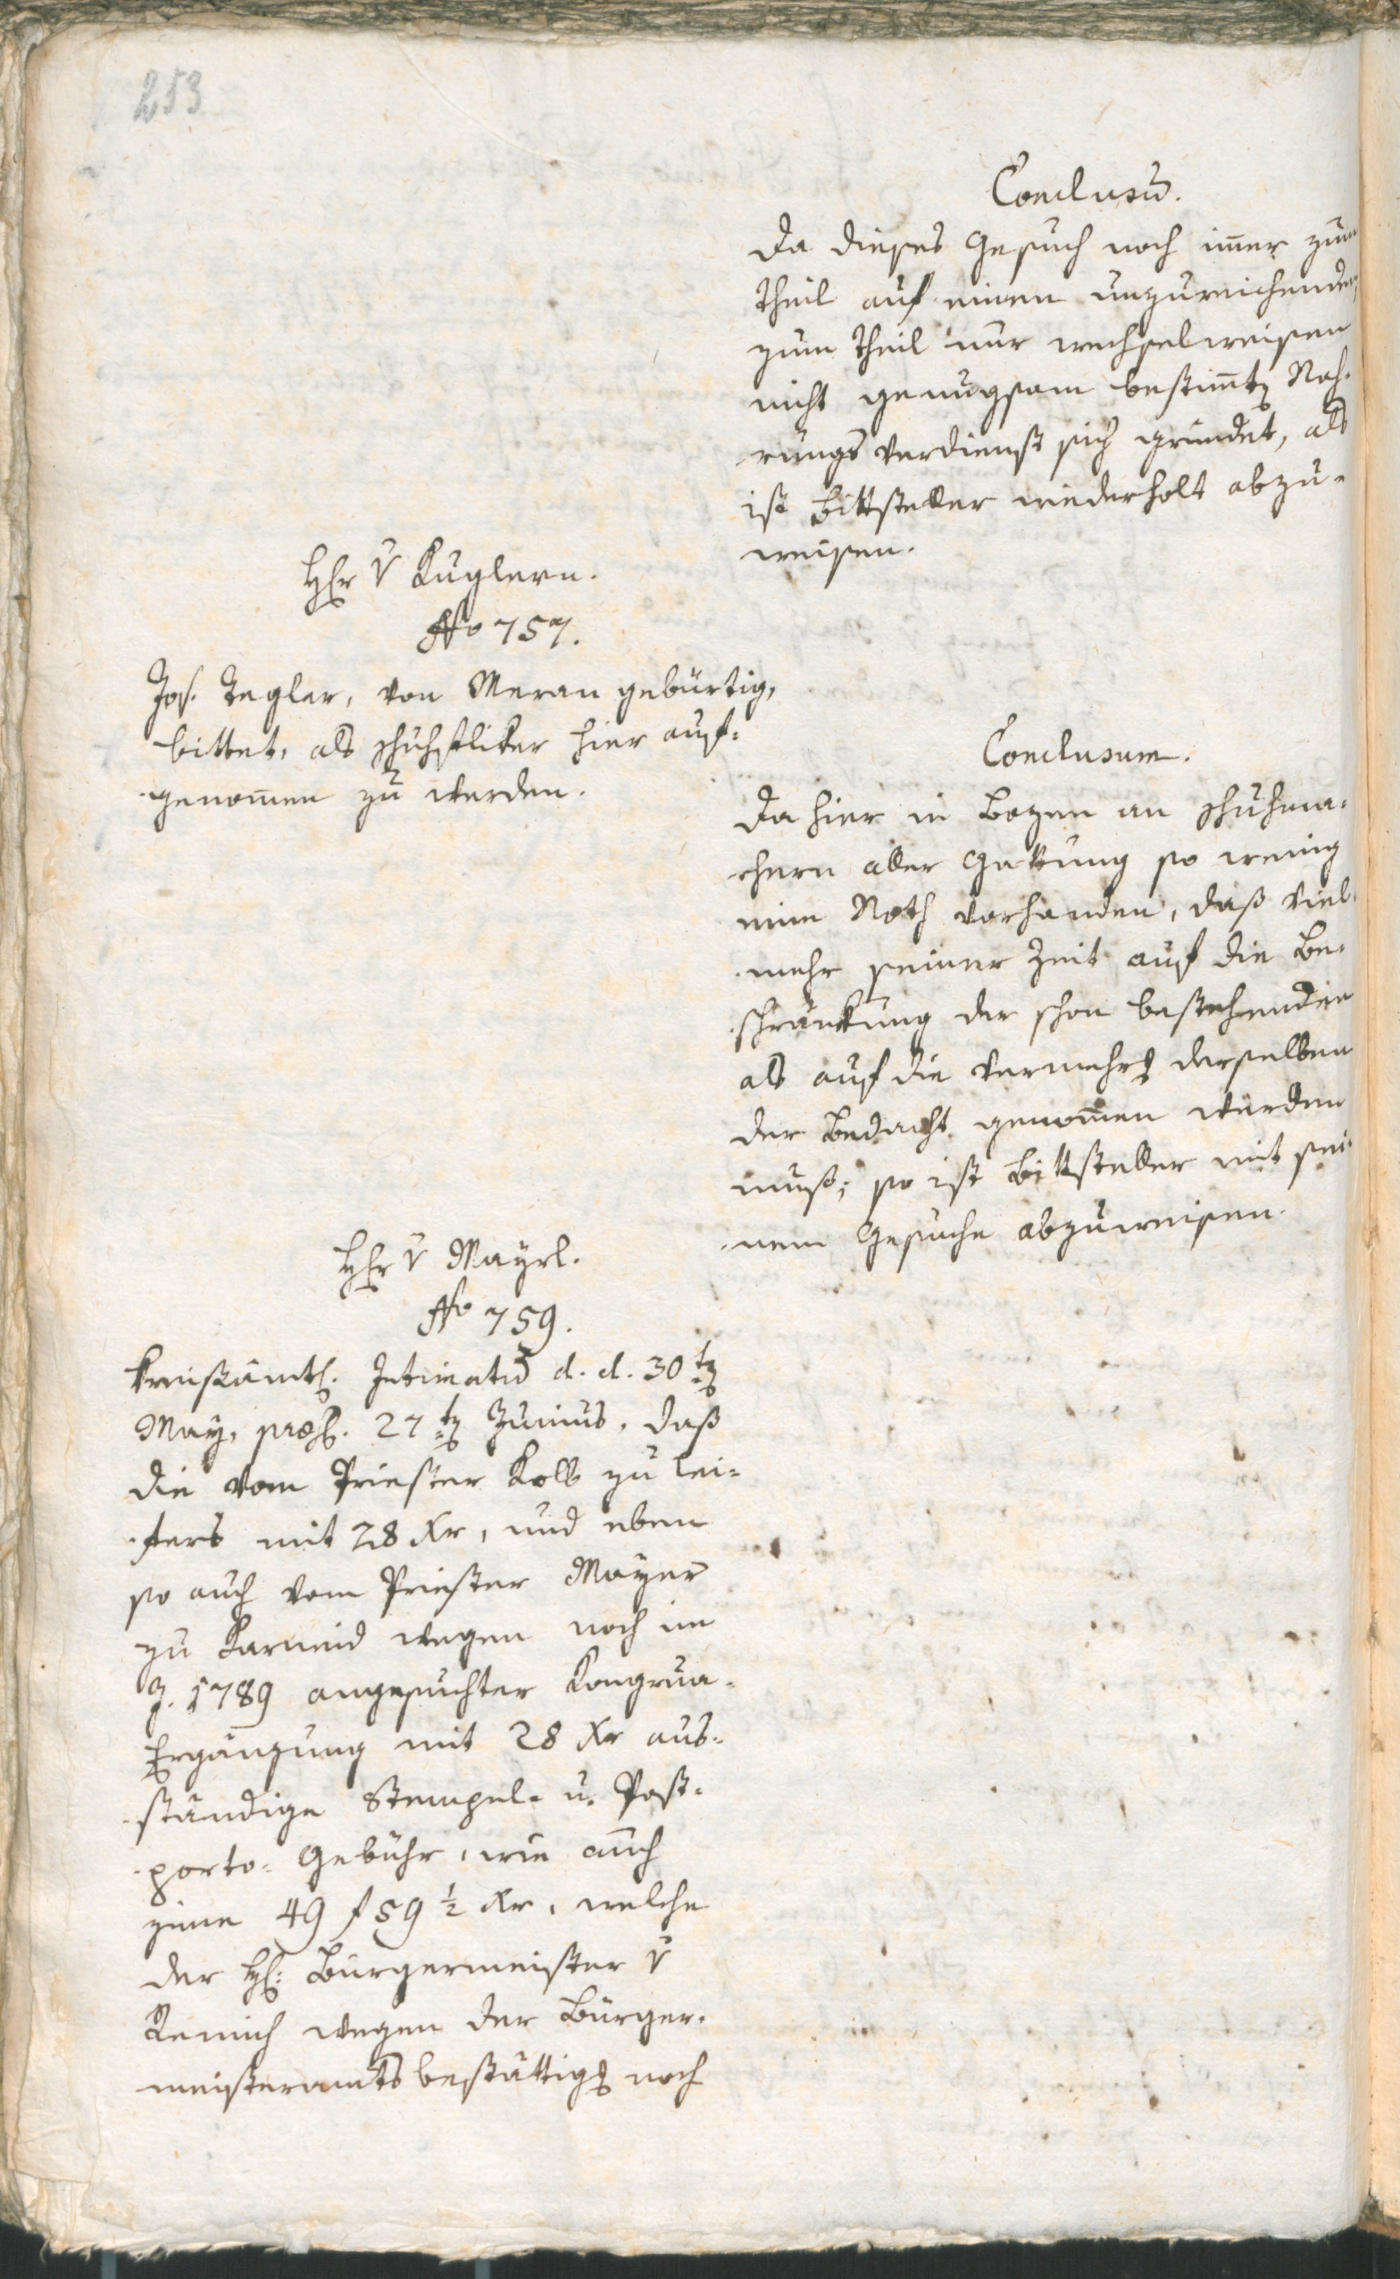 253
Conclusum̅.
Da dieses Gesuch noch im̅er zum
Theil auf einen unzureichenden,
zum Theil nur wechselweisen
nicht genugsam bestim̅ten Nah-
rungs Verdienst sich gründet, als
ist Bittsteller wiederholt abzu-
weisen.
Hr v Kuglern.
No 757.
Jos. Tegler, von Meran gebürtig,
bittet, als Schuhfliker hier auf-
genom̅en zu werden.
Conclusum.
Da hier in Bozen an Schuhma-
chern aller Gattung so wenig
eine Noth vorhanden, daß viel-
mehr seiner Zeit auf die Be-
schränkung der schon bestehenden
als auf die Vermehrg derselben
der Bedacht genom̅en werden
muß; so ist Bittsteller mit sei-
nem Gesuche abzuweisen.
Hr v Mayrl.
No 759.
Kreisämtl. Intimatum̅ d. d. 30ten
May, præs. 27ten Junius, daß
die vom Priester Kolb zu Lei-
fers mit 28 Xr, und eben
so auch vom Priester Mayer
zu Karneid wegen noch im
J. 1789 angesuchter Kongrua-
Ergänzung mit 28 Xr aus-
ständige Stempel- u. Post-
porto- Gebühr, wie auch
jene 49 f 59 ½ Xr, welche
der H: Bürgermeister v
Remich wegen der Bürger-
meisteramts bestättigg noch